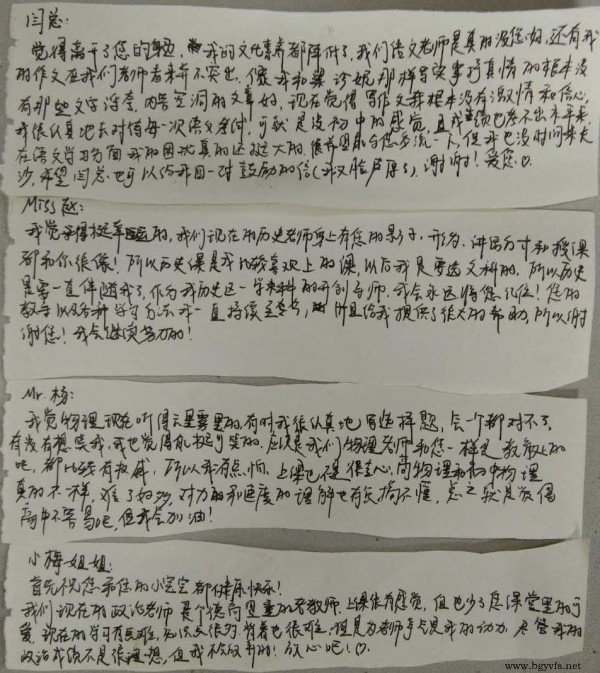 闫总:
觉得离开了您的身边，我的文化素养都降低了，我们语文老师是真的没您好，还有我
的作文在我们老师看来并不突出，像我和梁诗妮那样写实事抒真情的根本没
有那些文字浮夸，内容空洞的文章好，现在觉得写作文我根本没有激情和信心，
我很认真地去对待每一次语文考试，可就是没初中的感觉，且成绩也考不出水平来，
在语文学习方面我的困扰真的还挺大的，很希望能与您交流一下，但我也没时间来长
沙，希望闫总也可以给我回一封鼓励的信(我又脸皮厚了)，谢谢！爱您♡
Miss赵:
我觉得挺幸运的，我们现在的历史老师身上有您的影子，形容、讲话方式和授课
都和你很像！所以历史课是我比较喜欢上的课，以后我是要选文科的，所以历史
是要一直伴随我了，作为我历史这一学科的开创导师，我会永远将您记住！您的
教导以及各种学习方法我一直持续至今，并且给我提供了很大的帮助，所以谢
谢您！我会继续努力的！
Mr.杨:
我觉物理现在听得云里雾里的，有时我很认真地写选择题，会一个都对不了，
有没有想笑我，我也觉得有挺可笑的，应该是我们物理老师和您一样是教数上的
吧，都比较有权威，所以我有点怕，上课也不是很走心，高物理和初中物理
真的不一样，难了好多，对力的和速度的理解也有点搞不懂，总之就是发偶
高中不容易吧，但我会加油！
小梅姐姐:
首先祝您和您的小宝宝都健康快乐！
我们现在的政治老师是个德高望重的老教师，上课很有感觉，但也少了您课堂里的可
爱，现在的学习有点难，知识点很多，背着也很难，但是为老师争点是我的动力，尽管我的
政治成绩不是很理想，但我不会放弃的！放心吧！♡
www.bgyvfs.net